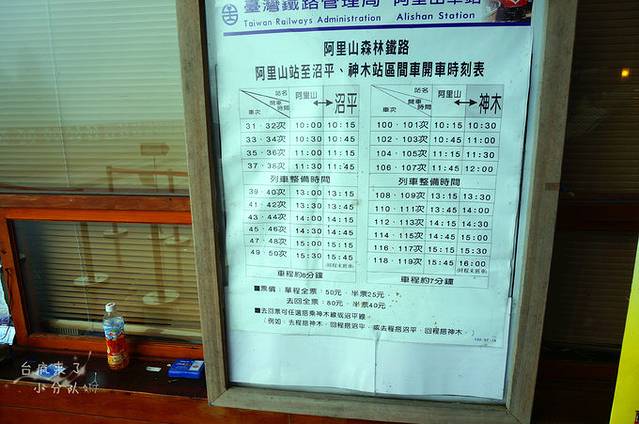 臺灣鐵路管理局 阿里山車站
Taiwan Railways Administration Alishan Station
阿里山森林鐵路
阿里山站至沼平、神木站區間車開車時刻表
站名 開車時間 車次 阿里山 ↔ 沼平
31．32次 10:00 10:15
33．34次 10:30 10:45
35．36次 11:00 11:15
37．38次 11:30 11:45
列車整備時間
39．40次 13:00 13:15
41．42次 13:30 13:45
43．44次 14:00 14:15
45．46次 14:30 14:45
47．48次 15:00 15:15
49．50次 15:30 15:45
(回程末班車)
車程約6分鐘
站名 開車時間 車次 阿里山 ↔ 神木
100．101次 10:15 10:30
102．103次 10:45 11:00
104．105次 11:15 11:30
106．107次 11:45 12:00
列車整備時間
108．109次 13:15 13:30
110．111次 13:45 14:00
112．113次 14:15 14:30
114．115次 14:45 15:00
116．117次 15:15 15:30
118．119次 15:45 16:00
(回程末班車)
車程約7分鐘
■票價：單程全票：50元．半票25元．
去回全票：80元．半票40元．
■去回票可任選搭乘神木線或沼平線
（例如：去程搭神木．回程搭沼平．或去程搭沼平．回程搭神木．）
台庭來了
小分隊